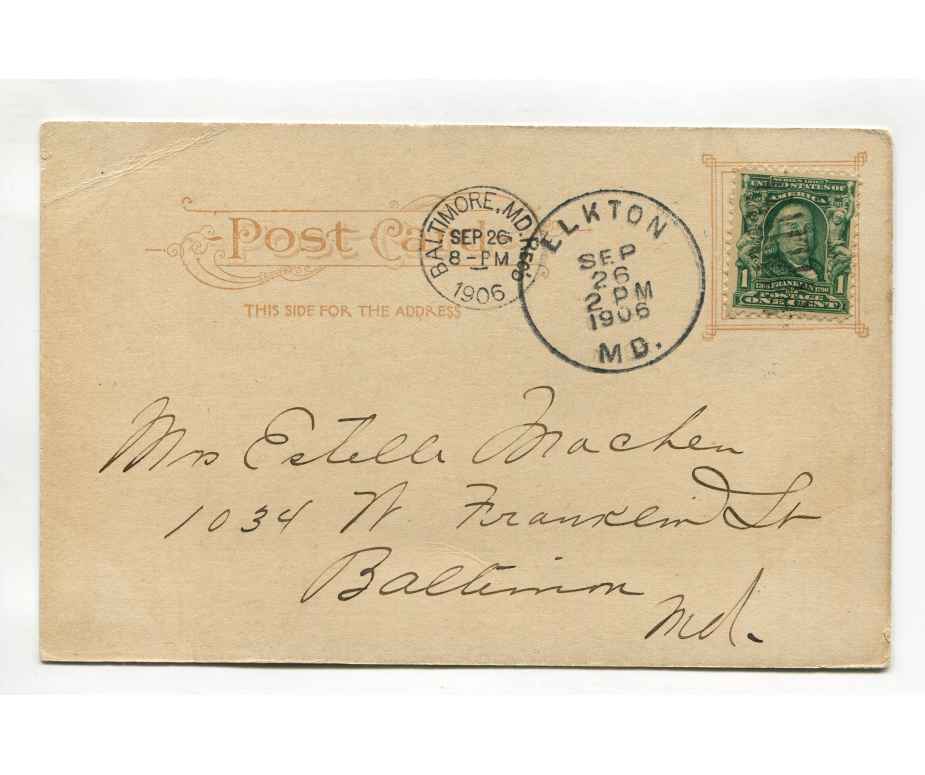 Post Card
THIS SIDE FOR THE ADDRESS
BALTIMORE, MD. REC'D
SEP 26
8-PM
1906
ELKTON
SEP
26
2 PM
1906
MD.
SERIES 1902
UNITED STATES OF
AMERICA
1 FRANKLIN 1
POSTAGE
ONE CENT
Mrs Estelle Machen
1034 W. Franklin St
Baltimore
Md.